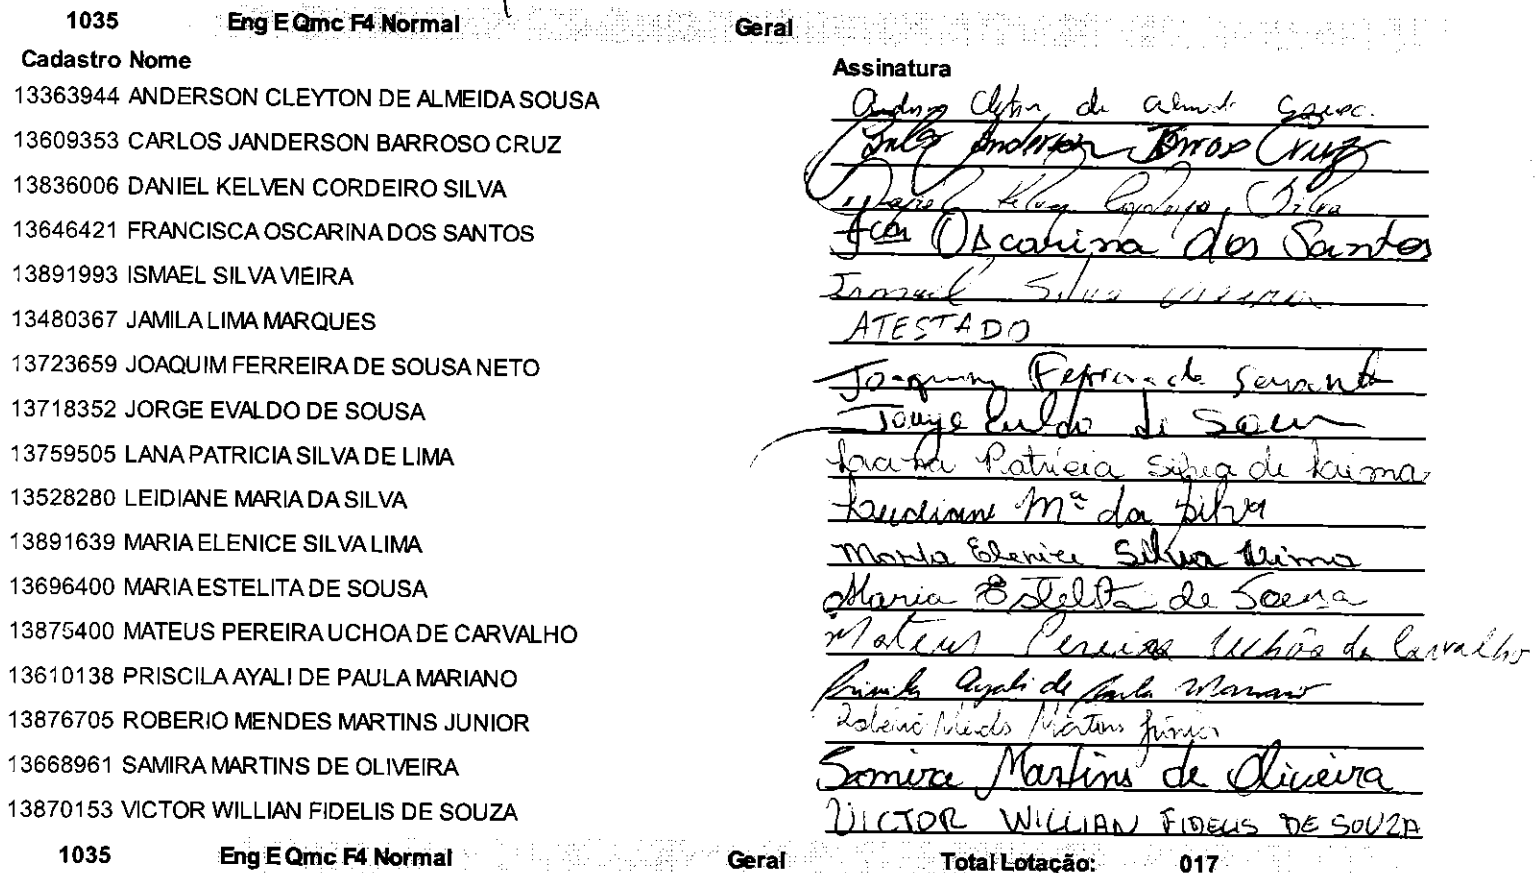 1035 Eng E Qmc F4 Normal Geral
Cadastro Nome Assinatura
13363944 ANDERSON CLEYTON DE ALMEIDA SOUSA de
13609353 CARLOS JANDERSON BARROSO CRUZ Anderson Cruz
13836006 DANIEL KELVEN CORDEIRO SILVA Daniel Kelven Silva
13646421 FRANCISCA OSCARINA DOS SANTOS Fca Oscarina dos Santos
13891993 ISMAEL SILVA VIEIRA Ismael Silva Vieira
13480367 JAMILA LIMA MARQUES ATESTADO
13723659 JOAQUIM FERREIRA DE SOUSA NETO Joaquim Ferreira de
13718352 JORGE EVALDO DE SOUSA Jorge de
13759505 LANA PATRICIA SILVA DE LIMA Patricia Silva de Lima
13528280 LEIDIANE MARIA DA SILVA Leidiane Mª da Silva
13891639 MARIA ELENICE SILVA LIMA Maria Elenice Silva Lima
13696400 MARIA ESTELITA DE SOUSA Maria Estelita de Sousa
13875400 MATEUS PEREIRA UCHOA DE CARVALHO Mateus Pereira Uchôa de Carvalho
13610138 PRISCILA AYALI DE PAULA MARIANO Priscila Ayali de Paula Mariano
13876705 ROBERIO MENDES MARTINS JUNIOR Roberio Mendes Martins Júnior
13668961 SAMIRA MARTINS DE OLIVEIRA Samira Martins de Oliveira
13870153 VICTOR WILLIAN FIDELIS DE SOUZA VICTOR WILLIAN FIDELIS DE SOUZA
1035 Eng E Qmc F4 Normal Geral Total Lotação: 017